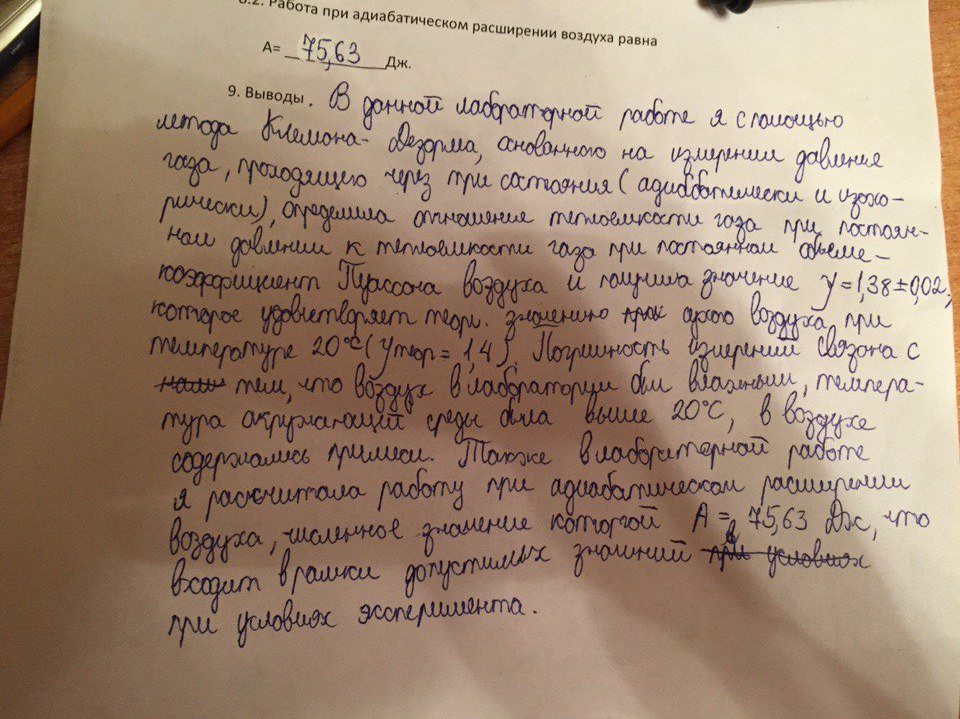 8.2. Работа при адиабатическом расширении воздуха равна
А= 75,63 Дж.
9. Выводы. В данной лабораторной работе я с помощью
метода Клемона-Дезорма, основанного на измерении давления
газа, проходящего через три состояния (адиабатически и изохо-
рически), определила отношение теплоемкости газа при постоян-
ном давлении к теплоемкости газа при постоянном объеме-
коэффициент Пуассона воздуха и получила значение γ=1,38±0,02,
которое удовлетворяет теор. значению сухого воздуха при
температуре 20°С (γтеор= 1,4). Погрешность измерений связана с
тем, что воздух в лаборатории был влажным, темпера-
тура окружающий среды была выше 20°С, в воздухе
содержались примеси. Также в лабораторной работе
я рассчитала работу при адиабатическом расширении
воздуха, численное значение которой А = 75,63 Дж, что
входит в рамки допустимых значений при условиях
при условиях эксперимента.